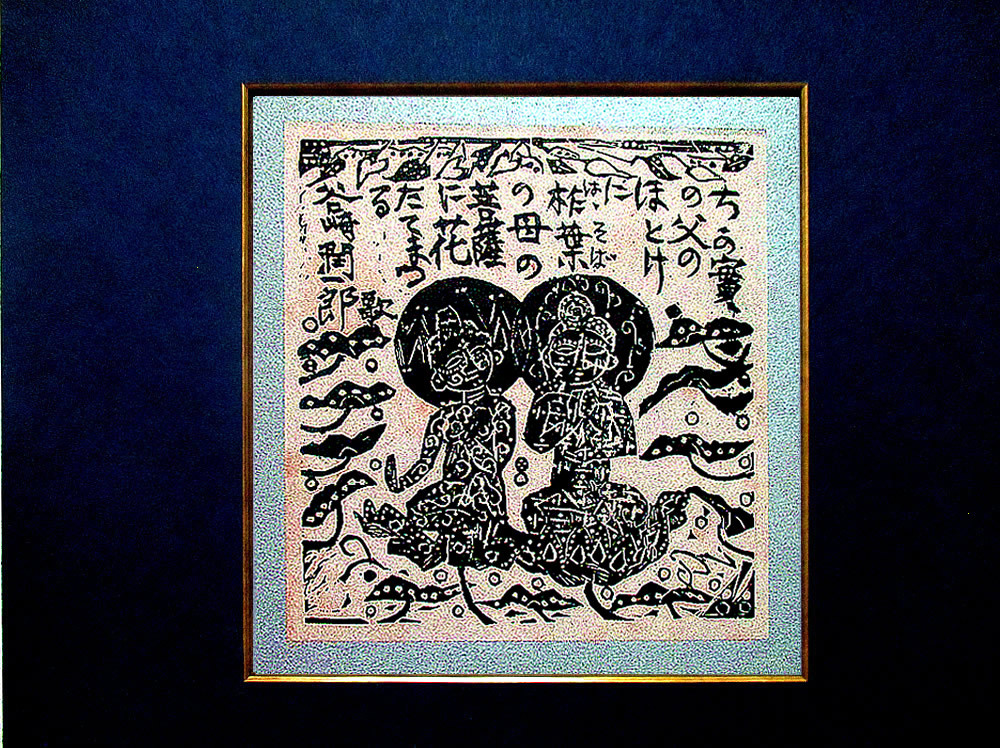 ちゝの實
の父の
ほとけ
に
柞葉
はゝそば
の母の
菩薩
に花
たてまつ
る
谷崎潤一郎
歌